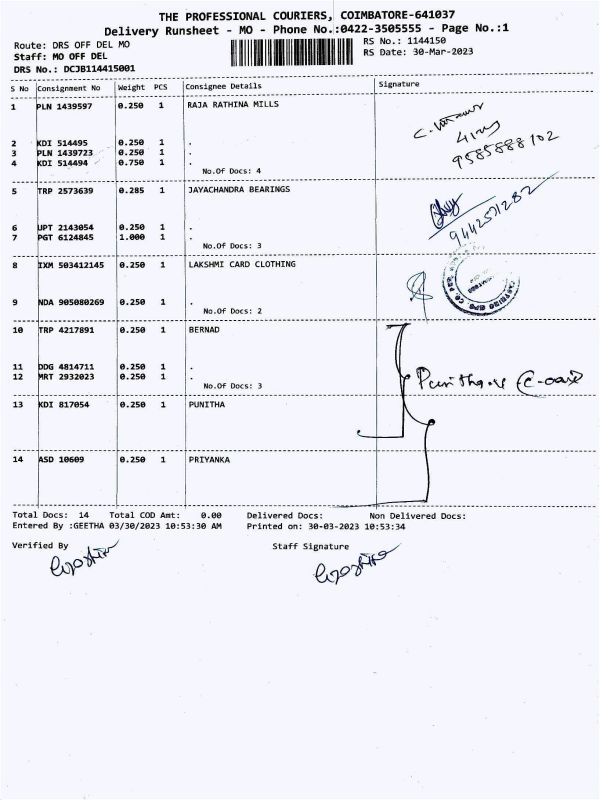 THE PROFESSIONAL COURIERS, COIMBATORE-641037
Delivery Runsheet - MO - Phone No.:0422-3505555 - Page No.:1
Route: DRS OFF DEL MO
RS No.: 1144150
Staff: MO OFF DEL
RS Date: 30-Mar-2023
DRS No.: DCJB114415001
S No Consignment No Weight PCS Consignee Details Signature
1 PLN 1439597 0.250 1 RAJA RATHINA MILLS
2 KDI 514495 0.250 1 .
3 PLN 1439723 0.250 1 .
4 KDI 514494 0.750 1 .
No.Of Docs: 4
9585888102
5 TRP 2573639 0.285 1 JAYACHANDRA BEARINGS
6 UPT 2143054 0.250 1 .
7 PGT 6124845 1.000 1 .
No.Of Docs: 3
9442571282
8 IXM 503412145 0.250 1 LAKSHMI CARD CLOTHING
9 NDA 905080269 0.250 1 .
No.Of Docs: 2
10 TRP 4217891 0.250 1 BERNAD
11 DDG 4814711 0.250 1 .
12 MRT 2932023 0.250 1 .
No.Of Docs: 3
13 KDI 817054 0.250 1 PUNITHA
14 ASD 10609 0.250 1 PRIYANKA
Total Docs: 14 Total COD Amt: 0.00 Delivered Docs: Non Delivered Docs:
Entered By :GEETHA 03/30/2023 10:53:30 AM Printed on: 30-03-2023 10:53:34
Verified By Staff Signature